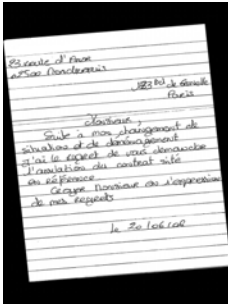 83 route d'
Paris
Monsieur,
Suite à mon changement de
situation et de déménagement
j'ai le regret de vous demander
l'annulation du contrat sité
en référence
Croyez Monsieur en l'expression
de mes regrets
le 20/06/08